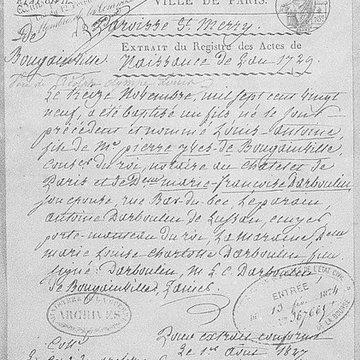 VILLE DE PARIS.
Paroisse St. Merry.
Extrait du Registre des Actes de
De
Bougainville
Naissance de l'an 1729.
Le treize Novembre, mil sept cent vingt
neuf, a été baptisé un fils, né le jour
précédent et nommé Louis-Antoine
fils de Me. pierre yves de Bougainville
Conser. du roi, notaire au châtelet de
Paris et de Delle marie-françoise Darboulin
son épouse, rue Bar du bec Le parain
antoine Darboulin de
porte-manteau du roi, La maraine
marie Louise charlotte Darboulin
signé: Darboulin, M L C Darboulin
de Bougainville,
ARCHIVES
ENTRÉE
1874
Pour extrait conforme
Le 1er avril